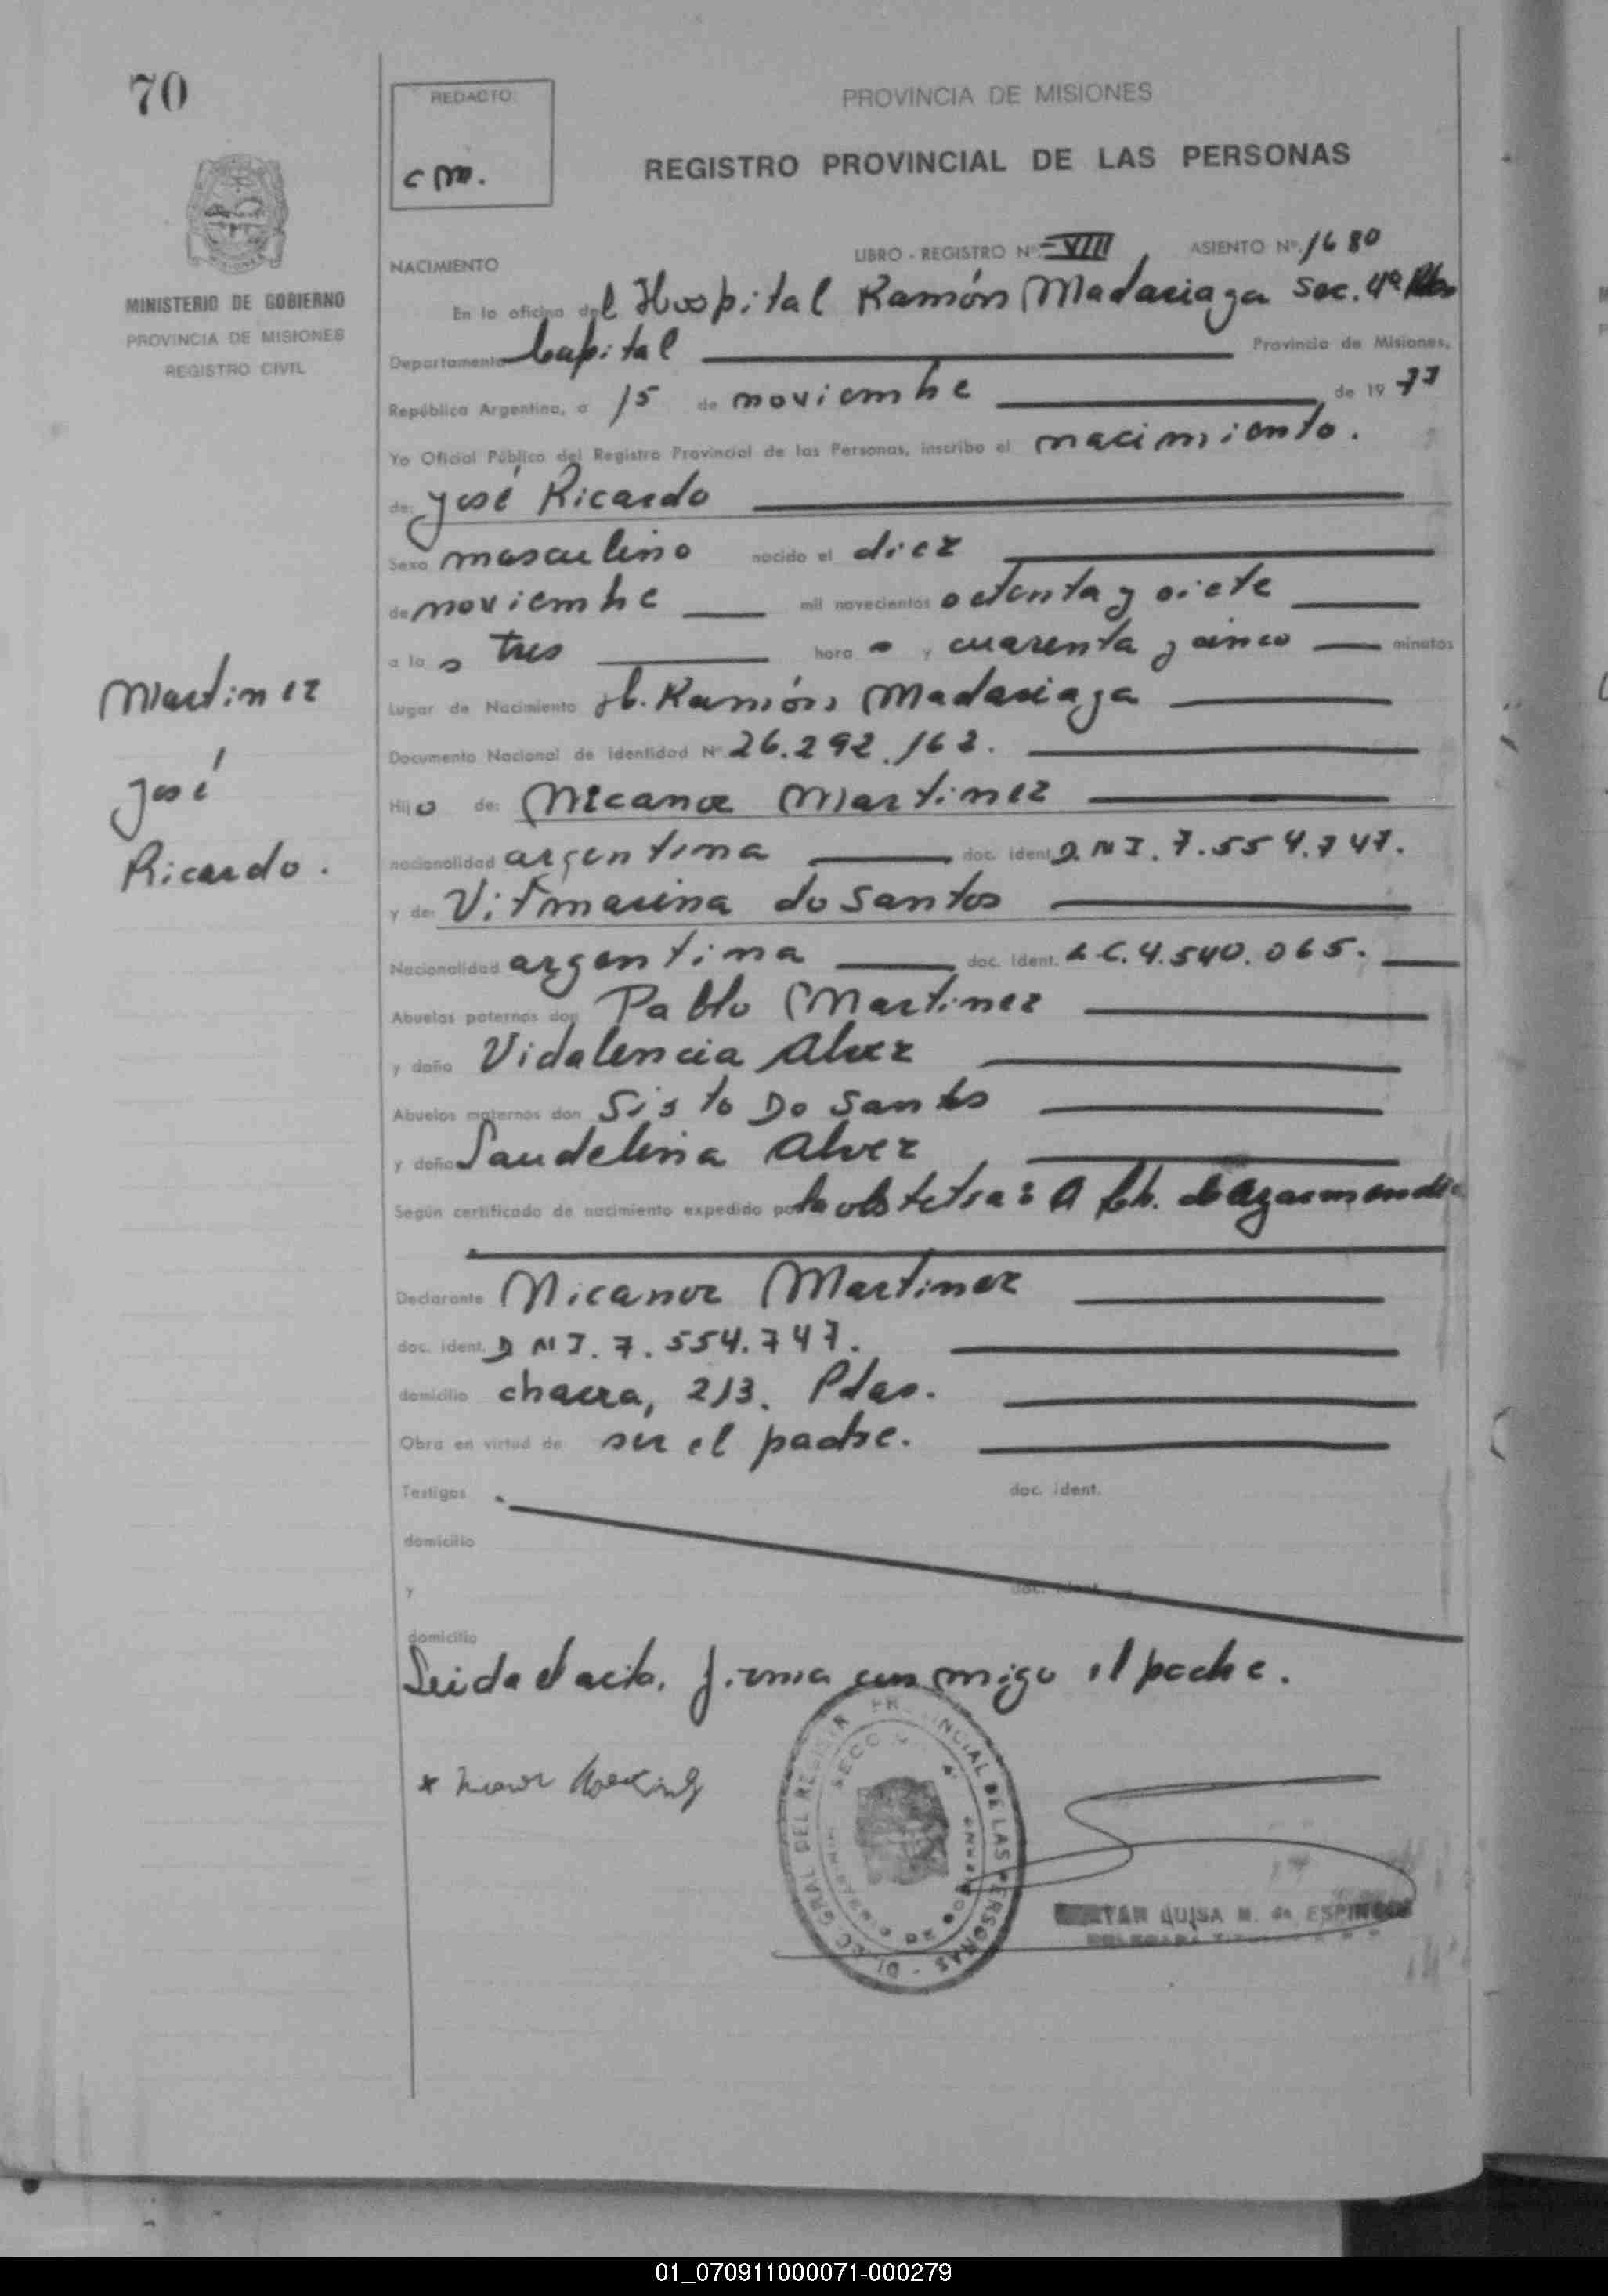 70
REDACTO:
cm.
PROVINCIA DE MISIONES
REGISTRO PROVINCIAL DE LAS PERSONAS
MISIONES
MINISTERIO DE GOBIERNO
PROVINCIA DE MISIONES
REGISTRO CIVIL
NACIMIENTO
LIBRO - REGISTRO Nº. VIII ASIENTO Nº. 1680
En la oficina del Hospital Ramón Madariaga Sec. 4ª
Departamento Capital Provincia de Misiones,
República Argentina, a 15 de noviembre de 1977
Yo Oficial Público del Registro Provincial de las Personas, inscribo el nacimiento.
de: José Ricardo
Sexo masculino nacido el diez
de noviembre mil novecientos octenta y siete
a las tres horas y cuarenta y cinco minutos
Martinez
José
Ricardo.
Lugar de Nacimiento H. Ramón Madariaga
Documento Nacional de identidad Nº 26.292.162.
Hijo de: Nicanor Martinez
nacionalidad argentina doc. ident. D.N.I. 7.554.747.
y de: Vitmarina do Santos
Nacionalidad argentina doc. ident. L.C. 4.540.065.
Abuelos paternos don Pablo Martinez
y doña Vidalencia Alvez
Abuelos maternos don Sisto Do Santos
y doña Laudelina Alvez
Según certificado de nacimiento expedido por la obstetra: A
Declarante Nicanor Martinez
doc. ident. DNI. 7.554.747.
domicilio chacra, 213. Pdas.
Obra en virtud de ser el padre.
Testigos doc. ident.
domicilio
y doc. ident.
domicilio
Leida el acta, firma conmigo el padre.
DIREC. GRAL DEL REGISTR PROVINCIAL DE LAS PERSONAS
SECCION 4ª
LUISA M. de ESPINOLA
01_070911000071-000279